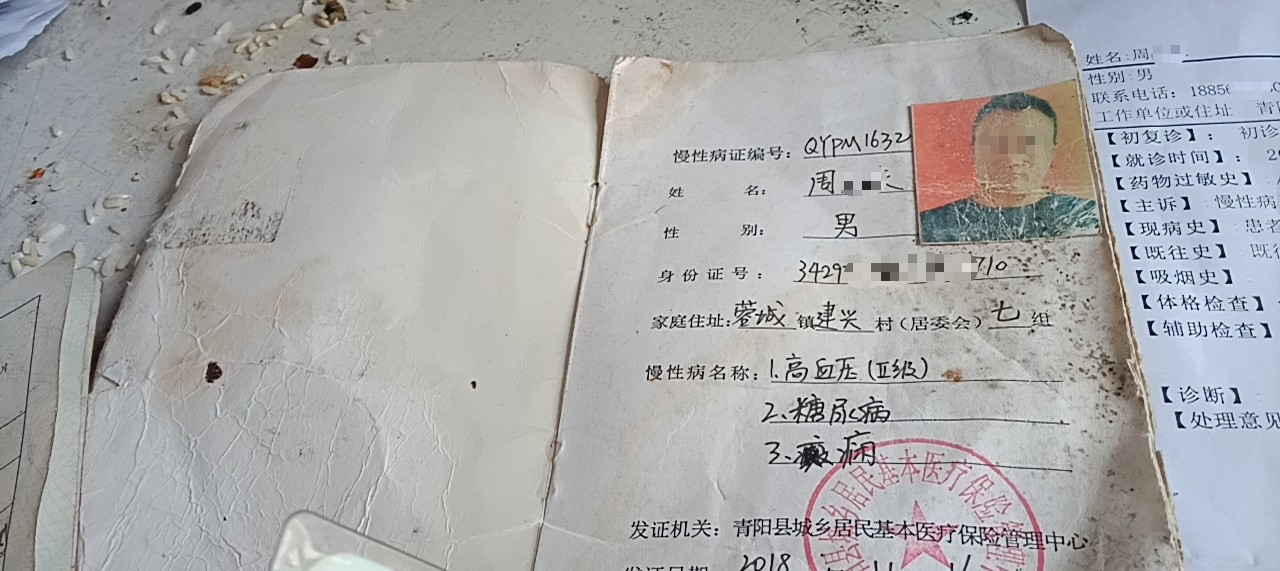 慢性病证编号：QYPM1632
姓名：周
性别：男
身份证号：3429 710
家庭住址：蓉城镇建兴村（居委会）七组
慢性病名称：1.高血压（Ⅱ级）
2.糖尿病
3.癫痫
发证机关：青阳县城乡居民基本医疗保险管理中心
2018
居民基本医疗保险管
姓名：周
性别：男
联系电话：1885
工作单位或住址 青
【初复诊】： 初诊
【就诊时间】： 20
【药物过敏史】
【主诉】 慢性病
【现病史】 患者
【既往史】 既往
【吸烟史】
【体格检查】
【辅助检查】
【诊断】
【处理意见